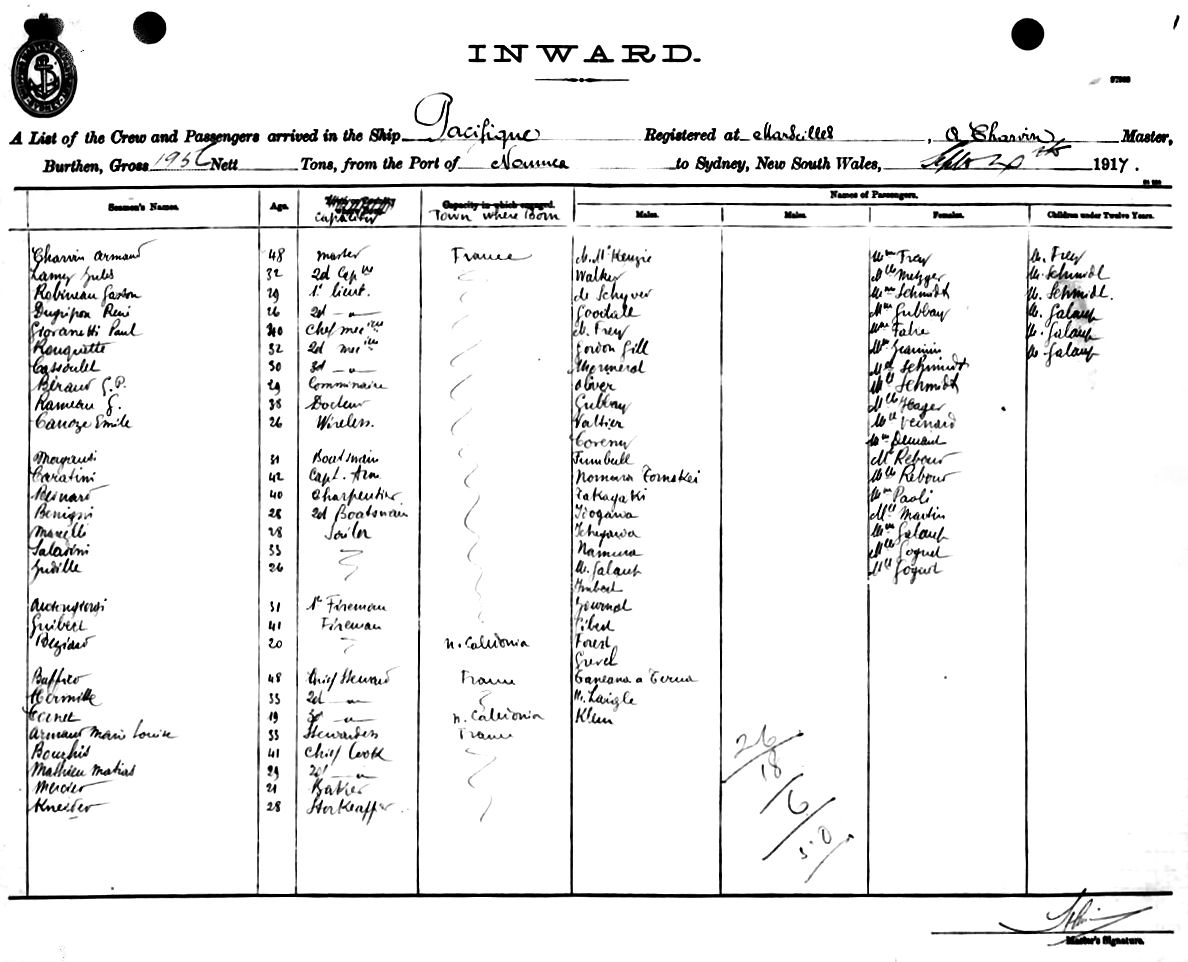 1
INWARD.
A List of the Crew and Passengers arrived in the Ship Pacifique Registered at Marseilles, A Charvin Master,
Burthen, Gross Nett Tons, from the Port of Noumea to Sydney, New South Wales, Sept 1917.
Names of Passengers.
Seamen's Names. Age. Capacity Capacity in which engaged. Town where Born Males. Males. Females. Children under Twelve Years.
Charvin Armand 48 Master France M. McKenzie Mme Frey M. Frey
Lamy Jules 32 2d Cap ne Walker Mlle Metzger M. Schmidt
Robineau Gaston 29 1r lieut. de Schyver Mme Schmidt M. Schmidt.
René 26 2d -"- Goodale Mme Gubbay M. Galaup
Giovanetti Paul 40 Chef mec ien M. Frey Mme Fabre M. Galaup
Rouquette 32 2d mec ien Gordon Gill Mme M. Galaup
Cassoulet 30 3d -"- Mlle Schmidt
Béraud G.P. 29 Comminaire Oliver Mlle Schmidt
Rameau G. 38 Docteur Gubbay Mlle Hager
Canoze Emile 26 Wireless. Vattier Mlle Veinard
Mme Demant
31 Boatswain Turnbull Mr Rebour
Caratini 42 Capt. Arm Nomura Tomskei Mlle Rebour
Besnard 40 Charpentier Takayaki Mme Paoli
Benigni 28 2d Boatswain Tiogawa Mlle Martin
28 Sailor Ichigawa Mme Galaup
Saladini 33 Namura Mlle Goguet
26 M. Galaup Mlle Goguet
Imbert
31 1r Fireman Journot
Guibert 41 Fireman Tibert
Beziard 20 N. Caledonia Forest
Grevel
Baffico 48 Chief Steward France Taneana a Terua
Hermitte 33 2d -"- M. Laigle
Cornet 19 3d -"- N. Caledonia Klein
Armand Marie Louise 33 Stewardess France
Bourhis 41 Chief Cook
Mathieu Matias 29 2d -"-
Mercier 21 Baker
Kneider 28 Storkeapper
26
18
6
50
Master's Signature.